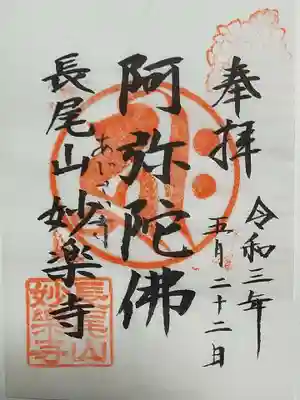 奉拝
令和三年
五月二十二日
阿弥陀佛
あじさい寺
長尾山妙楽寺
長尾山
妙楽寺